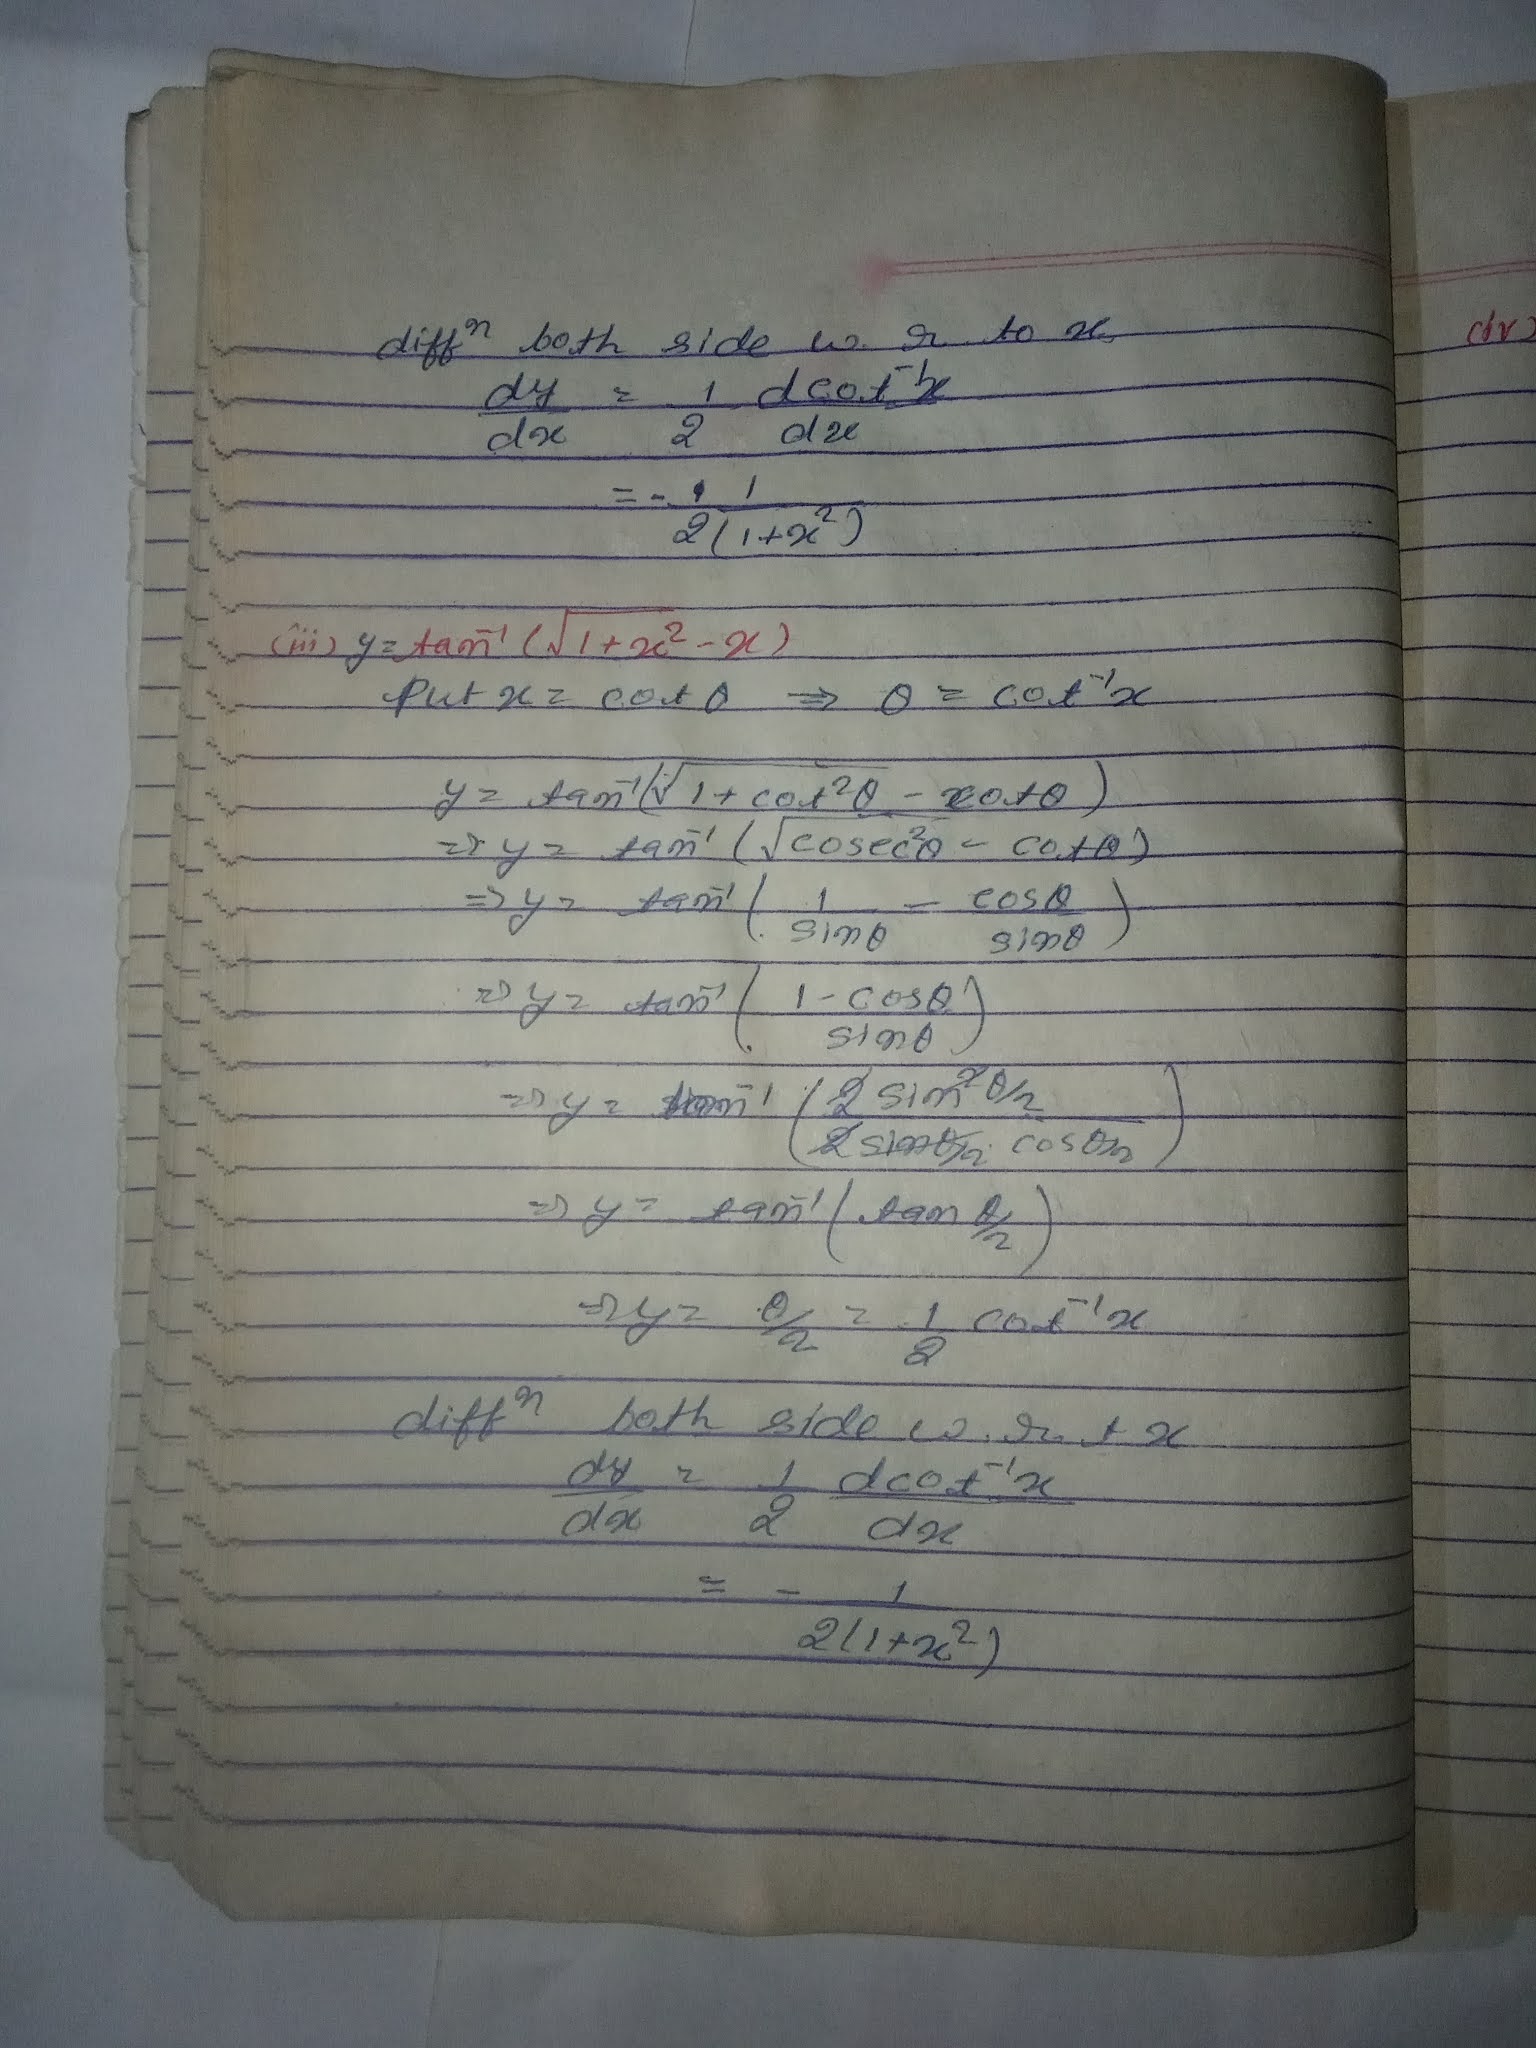 diffⁿ both side w. r. to x
dy/dx = 1/2 dcot⁻¹x/dx
= - 1/2(1+x²)
(iii) y = tan⁻¹ (√1+x² - x)
Put x = cot θ ⇒ θ = cot⁻¹x
y = tan⁻¹(√1+cot²θ - cotθ)
⇒ y = tan⁻¹ (√cosec²θ - cotθ)
⇒ y = tan⁻¹ (1/sinθ - cosθ/sinθ)
⇒ y = tan⁻¹ (1-cosθ/sinθ)
⇒ y = tan⁻¹ (2 sin² θ/2 / 2 sinθ/2. cosθ/2)
⇒ y = tan⁻¹ (tan θ/2)
⇒ y = θ/2 = 1/2 cot⁻¹x
diffⁿ both side w. r. t x
dy/dx = 1/2 dcot⁻¹x/dx
= - 1/2(1+x²)
(iv)